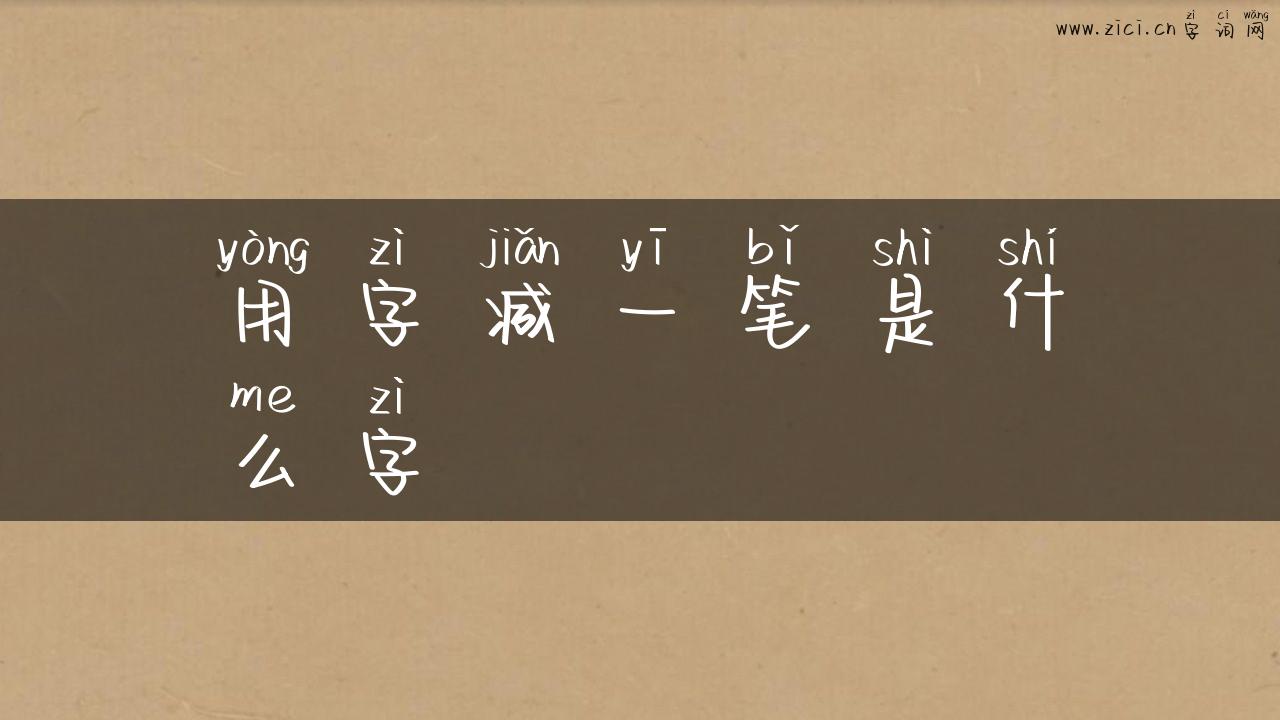 zì cí wǎng
www.zici.cn 字词网
yòng zì jiǎn yī bǐ shì shí
用字减一笔是什
me zì
么字